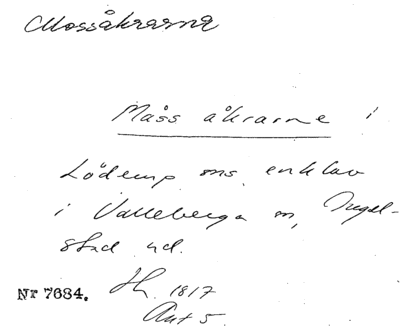 Mossåkrarna
Måss åkrarne i
Löderup sns enklav
i Valleberga sn, Ingel-
stad hd.
Nr 7684. Sk. 1817
Akt 5